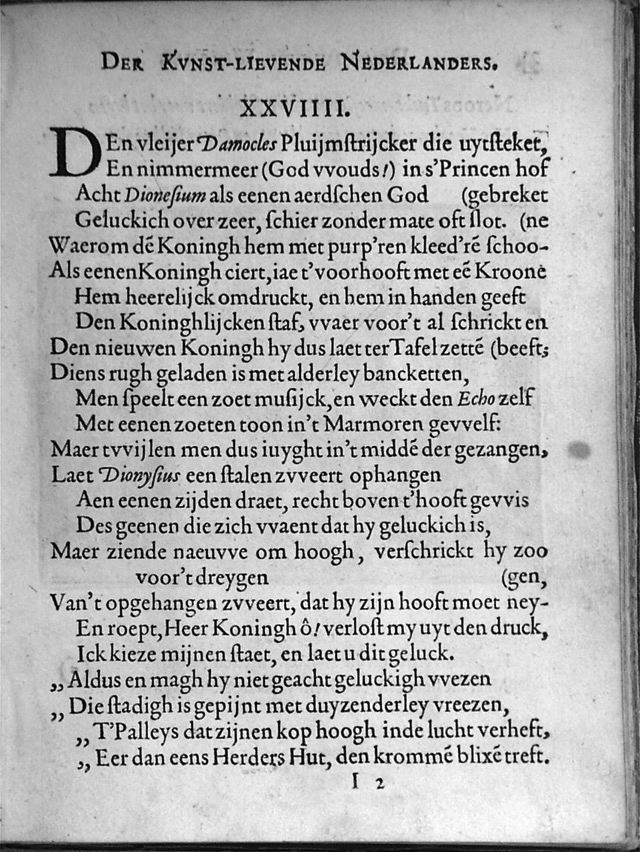 DER KVNST-LIEVENDE NEDERLANDERS.
XXVIIII.
DEn vleijer Damocles Pluijmſtrijcker die uytſteket,
En nimmermeer (God vvouds!) in s'Princen hof
Acht Dioneſium als eenen aerdſchen God (gebreket
Geluckich over zeer, ſchier zonder mate oft ſlot. (ne
Waerom dē Koningh hem met purp'ren kleed'rē ſchoo-
Als eenen Koningh ciert, iae t'voorhooft met eē Kroone
Hem heerelijck omdruckt, en hem in handen geeft
Den Koninghlijcken ſtaf, vvaer voor't al ſchrickt en
Den nieuwen Koningh hy dus laet ter Tafel zettē (beeft;
Diens rugh geladen is met alderley bancketten,
Men ſpeelt een zoet muſijck, en weckt den Echo zelf
Met eenen zoeten toon in't Marmoren gevvelf:
Maer tvvijlen men dus iuyght in't middē der gezangen,
Laet Dionyſius een ſtalen zvveert ophangen
Aen eenen zijden draet, recht boven t'hooft gevvis
Des geenen die zich vvaent dat hy geluckich is,
Maer ziende naeuvve om hoogh, verſchrickt hy zoo
voor't dreygen (gen,
Van't opgehangen zvveert, dat hy zijn hooft moet ney-
En roept, Heer Koningh ô! verloſt my uyt den druck,
Ick kieze mijnen ſtaet, en laet u dit geluck.
„Aldus en magh hy niet geacht geluckigh vvezen
„ Die ſtadigh is gepijnt met duyzenderley vreezen,
„ T'Palleys dat zijnen kop hoogh inde lucht verheft,
„ Eer dan eens Herders Hut, den krommē blixē treft.
I 2